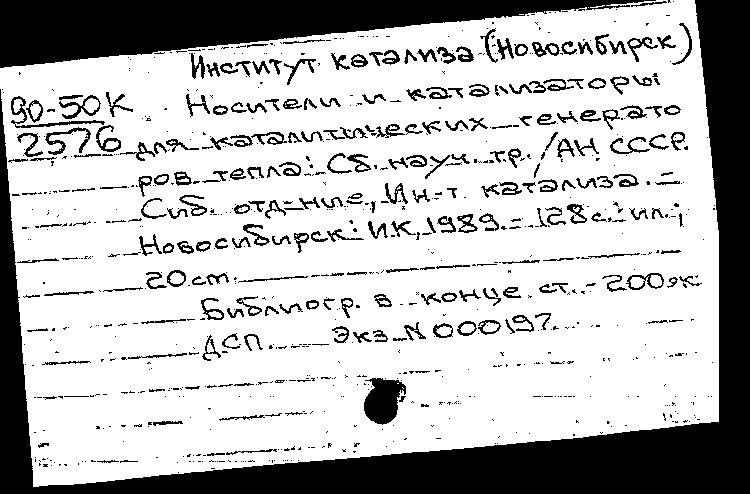 Институт катализа (Новосибирск)
90-50К
2576
Носители и катализаторы
для каталитических генерато
ров тепла: Сб. науч. тр. / АН СССР.
Сиб. отд-ние, Ин-т катализа. –
Новосибирск: ИК, 1989. – 128 с.: ил.;
20 cm.
Библиогр. в конце ст. – 200 эк
ДСП. Экз. N 000197.